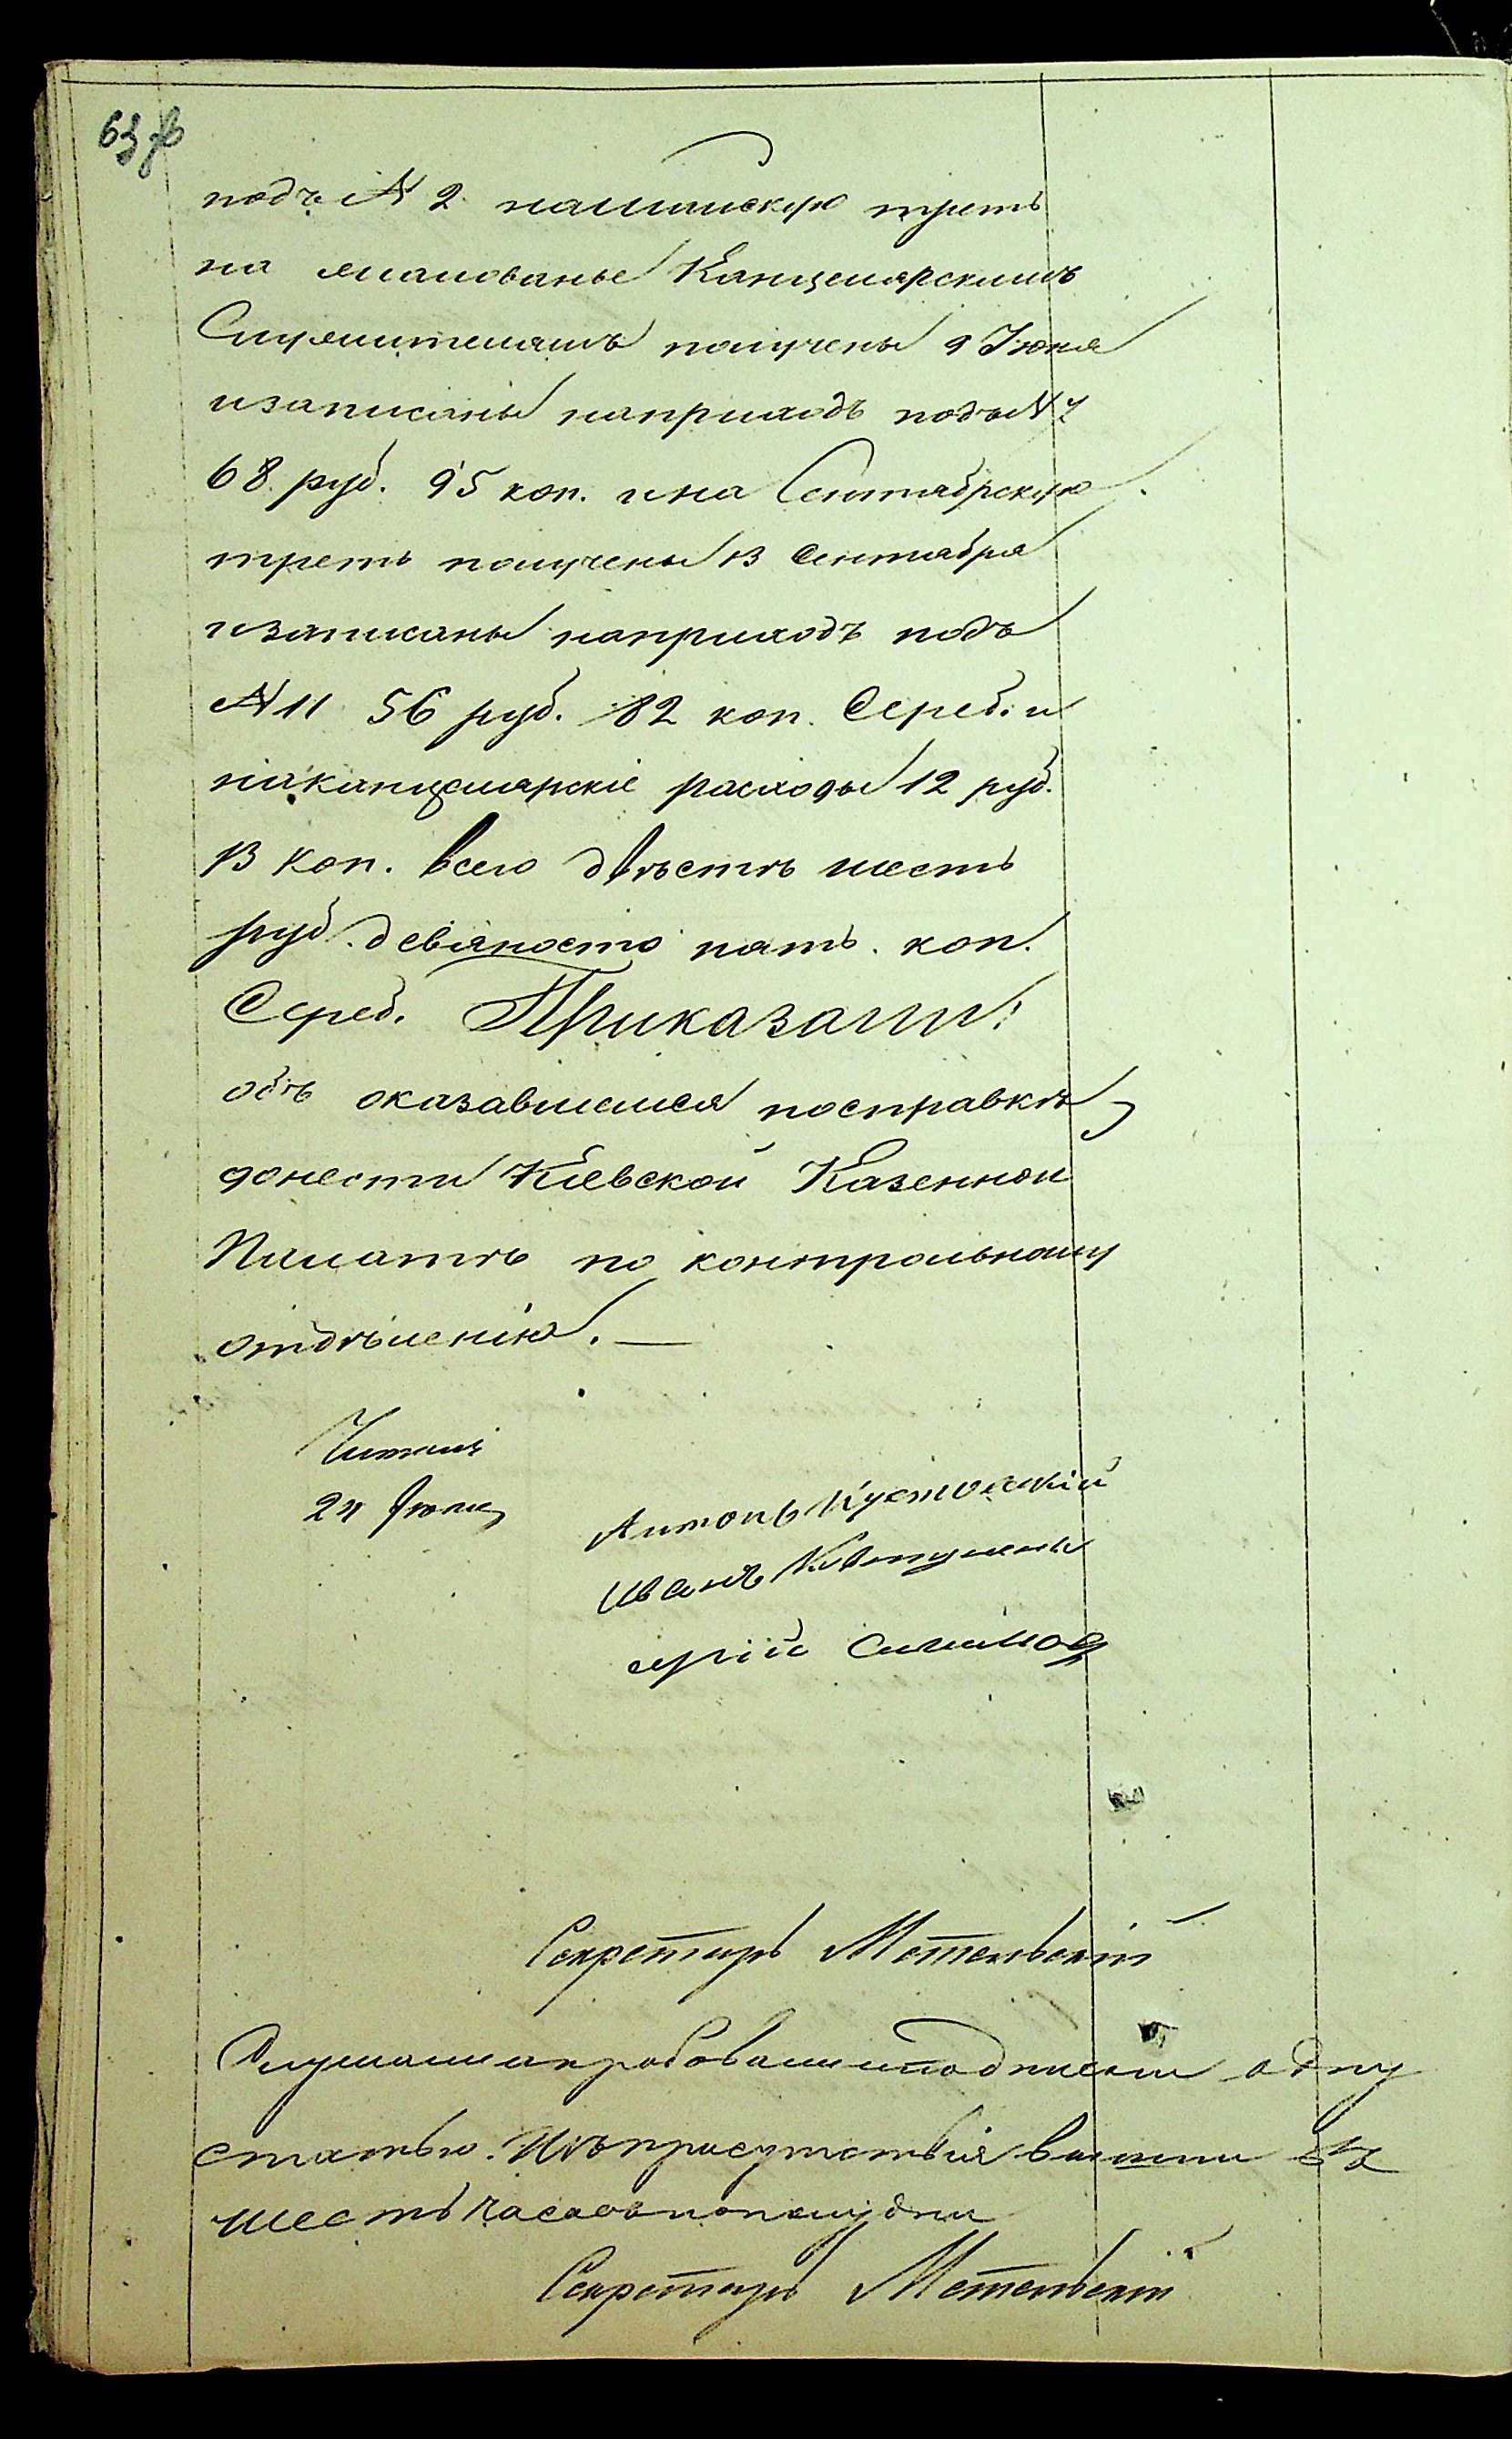 63 об
подъ № 2 намайскую треть
на жалованье Канцелярскимъ
Служителямъ получены 9 Іюня
изаписаны наприходъ подъ № 7
68 руб. 95 коп. ина Сентябрскую
треть получены 13 Сентября
изаписаны наприходъ подъ
№ 11 56 руб. 82 коп. Сереб. и
наканцелярскіе расходы 12 руб.
13 коп. всего двѣстѣ шесть
руб. девяносто пять коп.
Сереб. Приказали:
объ оказавшемся посправкѣ
донести Кіевской Казенной
Палатѣ по контрольному
отдѣленію. —
Читалъ
24 Іюня
Антонъ
Иванъ
Секретарь
Слушали апробовали иподписали одну
статью. Изъ присутствія вышли въ
шесть часовъ пополудни
Секретарь